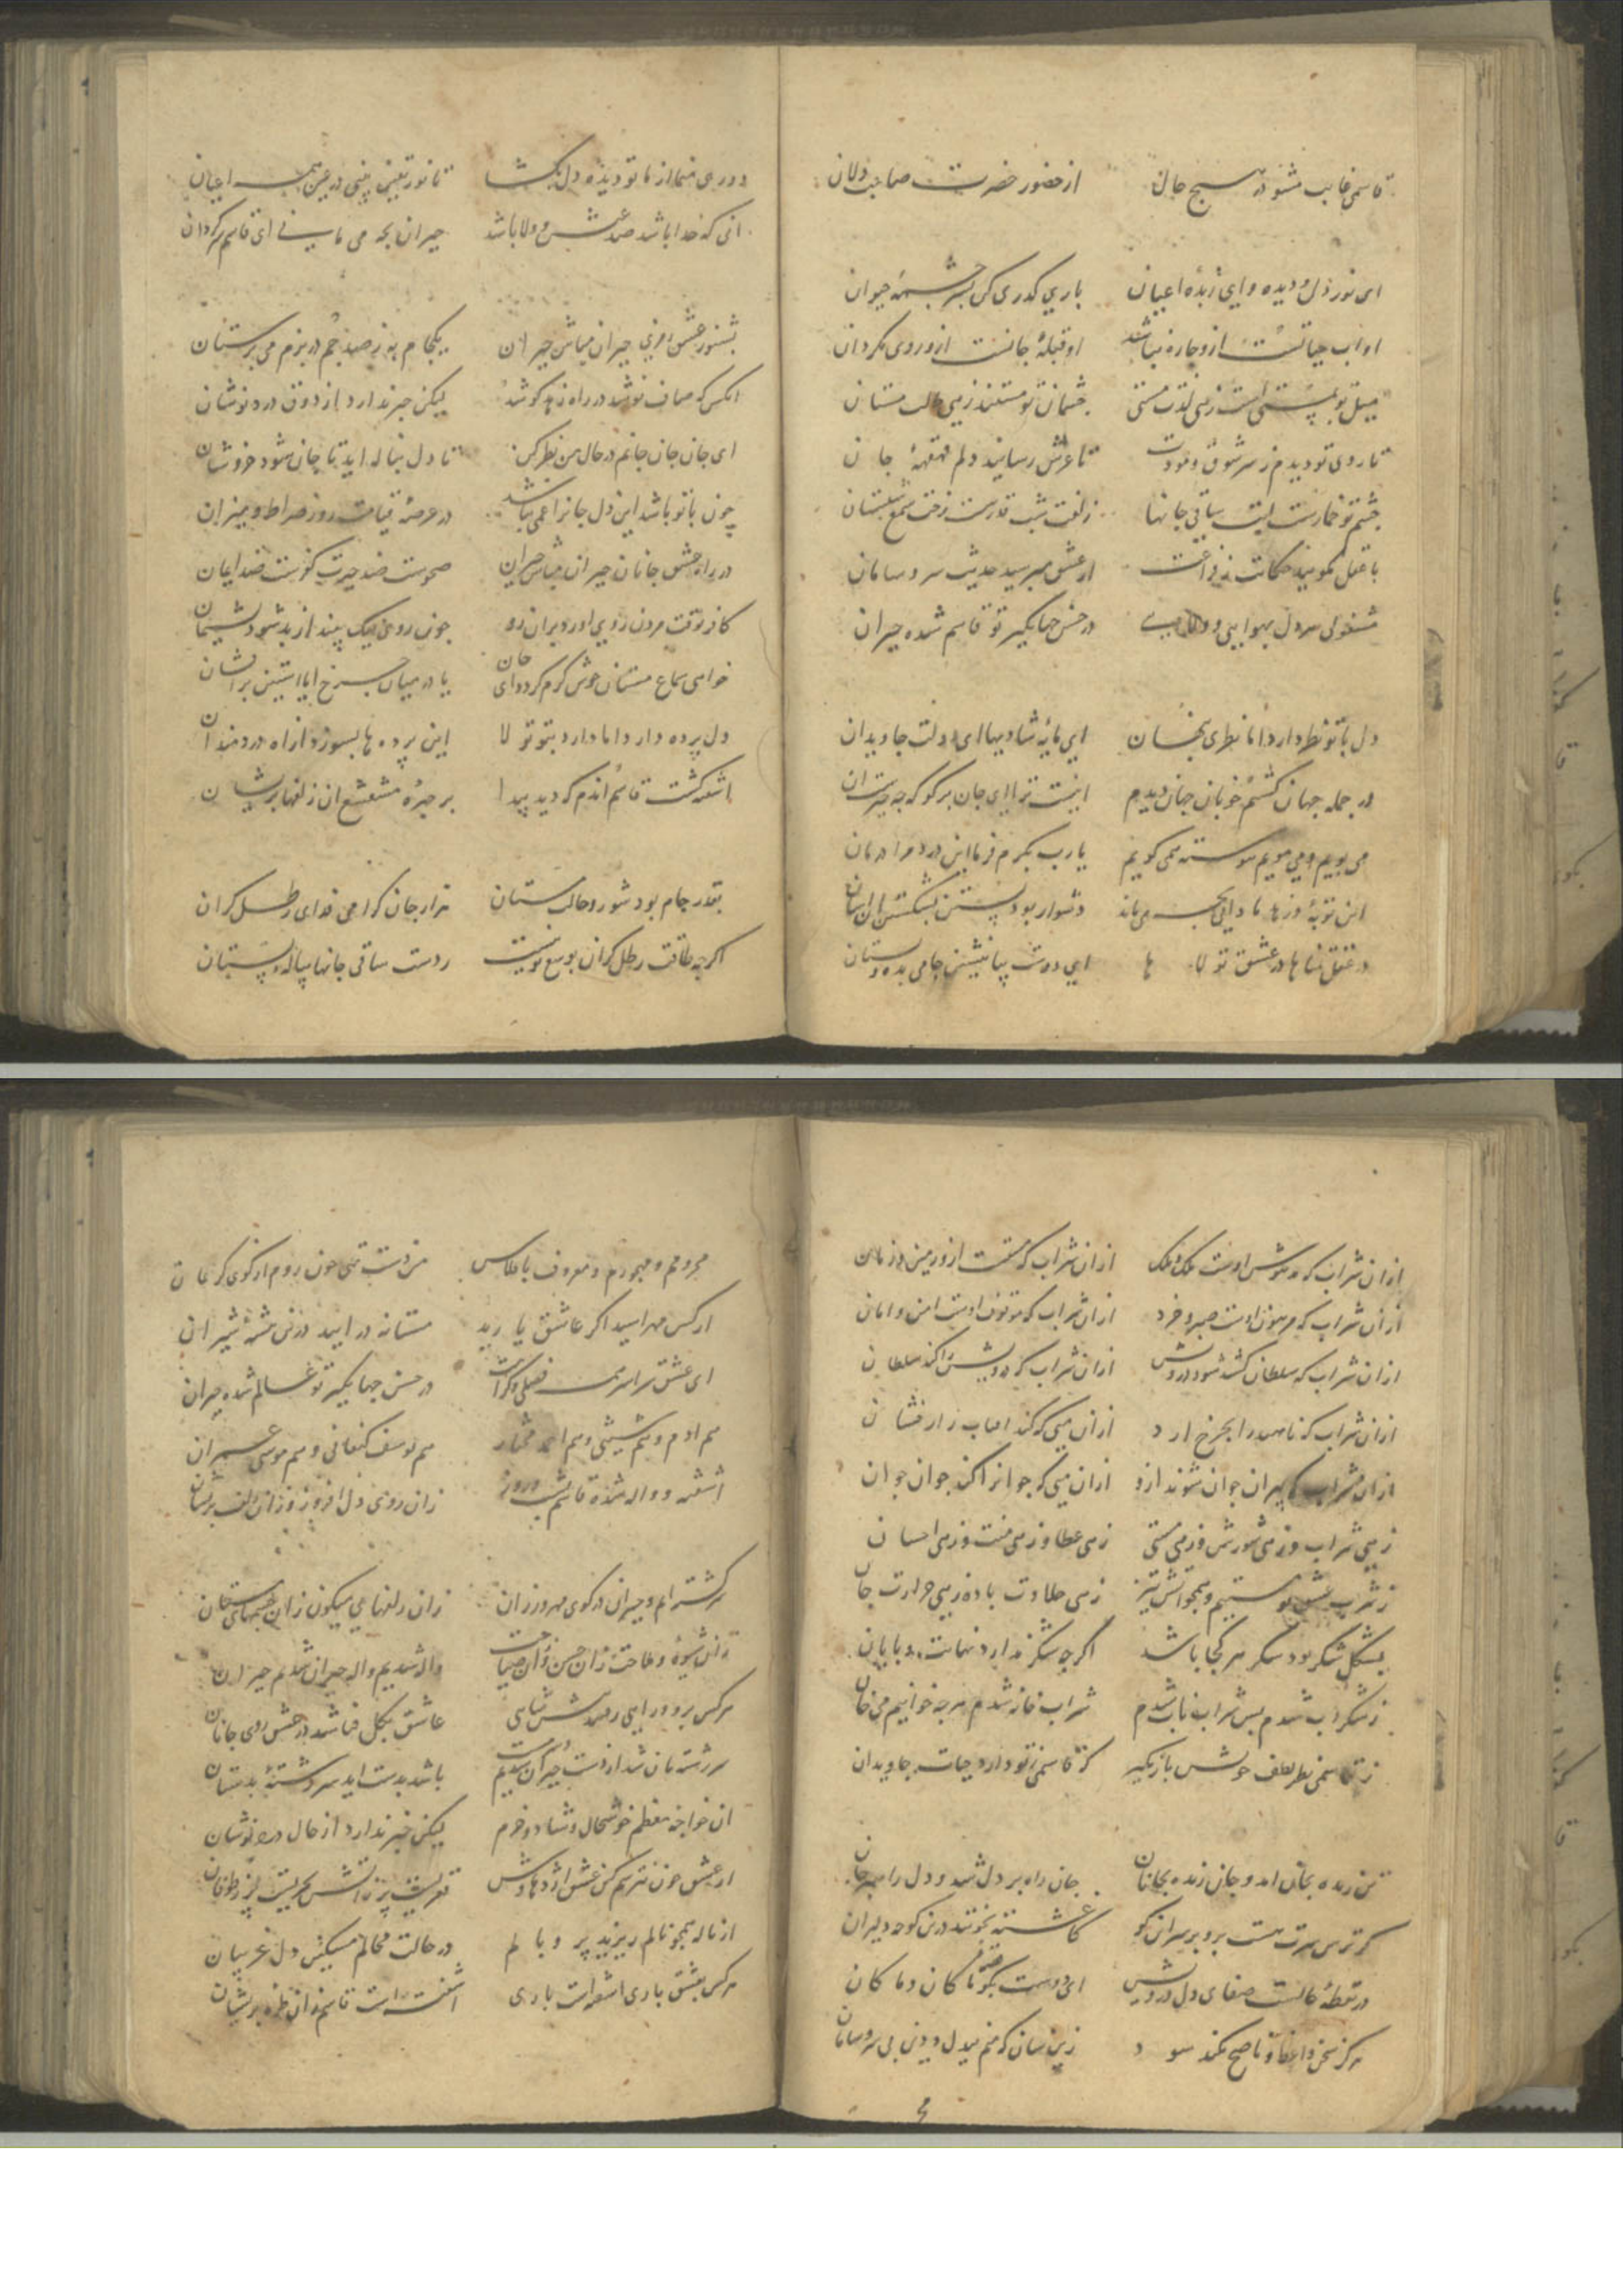 قاسمی غایب مشو در هیچ حال از حضور حضرت صاحب دلان
ای نور دل و دیده و ای زبده اعیان باری گذری کن بسر چشمه حیوان
او اب حیاتست ازو چاره نباشد او قبله جانست ازو روی مکردان
چشمان تو مستند زهی حالت مستان
تا روی تو دیدم ز سر شوق و مودت تا عرش رسانید دلم قهقهه جان
چشم تو خمارست لبت ساقی جانها زلفت شب قدرست رخت شمع شبستان
با عقل مکویید حکایت از عشق مپرسید حدیث سر و سامان
در حسن جهانکیر تو قاسم شده حیران
دل با تو نظر دارد اما نظری پنهان ای مایه شادیها ای دولت جاویدان
در جمله جهان کشتم خوبان جهان دیدم
می پویم و می مویم پیوسته همی کویم یارب بکرم فرما این درد مرا درمان
دشوار بود بستن بشکستن ان اسان
در عشق تو ای دوست بیا بنشین جامی بده و بستان
دوری منما از ما تو دیده دل بکشا تا نور یقین بینی در عین همه اعیان
انی که خدا باشد حیران بچه می مانی ای قاسم سرکردان
بشنو ز عشق رمزی حیران مباش حیران یکجام به ز صد جم در بزم می پرستان
انکس که صاف نوشد در راه زهد کوشد لیکن خبر ندارد از ذوق درد نوشان
ای جان جان جانم در حال من نظر کن تا دل بناله اید تا جان شود خروشان
چون با تو باشد این دل جانرا غمی نباشد در عرصه قیامت روز صراط و میزان
در راه عشق جانان حیران مباش حیران
کافر بوقت مردن چون روی نیک بیند از بد شود پشیمان
خواهی سماع مستان خوش کرم کردد ای جان یا در میان مچرخ ایا استین برافشان
دل پرده دارد اما دارد بتو تولا این پرده ها بسوزد از اه دردمندان
اشفته کشت قاسم اندم که دید پیدا بر چهره مشعشع ان زلفها پریشان
بقدر جام بود شور و حالت مستان هزار جان کرامی فدای رطل کران
اکرچه طاقت رطل کران بوسع تو نیست ز دست ساقی جانها پیاله بستان
ازان شراب که مدهوش اوست ملک و ملک ازان شراب که مستست ازو زمین و زمان
ازان شراب که مرهون اوست صبر و خرد ازان شراب که موقوف اوست امن و امان
ازان شراب که سلطان کشد شود درویش ازان شراب که درویش را کند سلطان
ازان شراب که ناهید را بچرخ ارد ازان می که کند افتاب را رفشان
ازان شراب که پیران جوان شوند ازو ازان می که جوانرا کند جوان جوان
زهی شراب و زهی شورش و زهی مستی زهی عطا و زهی منت و زهی احسان
ز شرب عشق تو مستیم و همچو اتش تیز زهی حلاوت باده زهی حرارت جان
بشکل شکر بود شکر هر کجا باشد اکرچه شکر ندارد نهایت و پایان
ز شکر اب شدم پس شراب ناب شدم شراب خانه شدم هرچه خوانیم می خوان
ز قاسمی نظر لطف خویش باز مکیر که قاسمی ز تو دارد حیات جاویدان
تن زنده بجان امد و جان زنده بجانان جان راه بر دل شد و دل راهبر جان
کر ترس سرت هست برو بر سر ان کو کاغشته بخونند درین کوچه دلیران
در نقطه حالست صفای دل درویش ای دوست بکو تا صفت کان و ما کان
هرکز سخن واعظ و ناصح نکند سود زین سان که منم بیدل و دین بی سر و سامان
محرومم و مهجورم و معروف بافلاس من دست تهی چون روم از کوی کریمان
از کس مهراسید اکر عاشق یارید مستانه درایید درین بیشه شیران
ای عشق سراسر همه فضلی و کرامت در حسن جهانکیر تو عالم شده حیران
هم ادم و هم شیثی و هم احمد مختار هم یوسف کنعانی و هم موسی عمران
اشفته و واله شده قاسم شب و روز زان روی دل افروز و زان زلف پریشان
سرکشته ام و حیران در کوی مهرورزان زان زلفهای میکون زان چشمهای مستان
زان شیوه و ملاحت زان حسن و ان صباحت واله شدیم واله حیران شدیم حیران
عاشق بکل فنا شد در عشق روی جانان
سررشته مان شد از دست حیران شدیم باشد بدست اید سررشته بدستان
ان خواجه معظم خوشحال و شاد و خرم لیکن خبر ندارد از حال درد نوشان
از عشق چون نترسم کین عشق اژدهاوش قعریست پر ز اتش بحریست پر ز طوفان
از ناله همچو نالم ریزید پر و بالم در حالت محالم مسکین دل غریبان
هر کس بعشق یاری اشفته است باری اشفته است قاسم زان طره پریشان